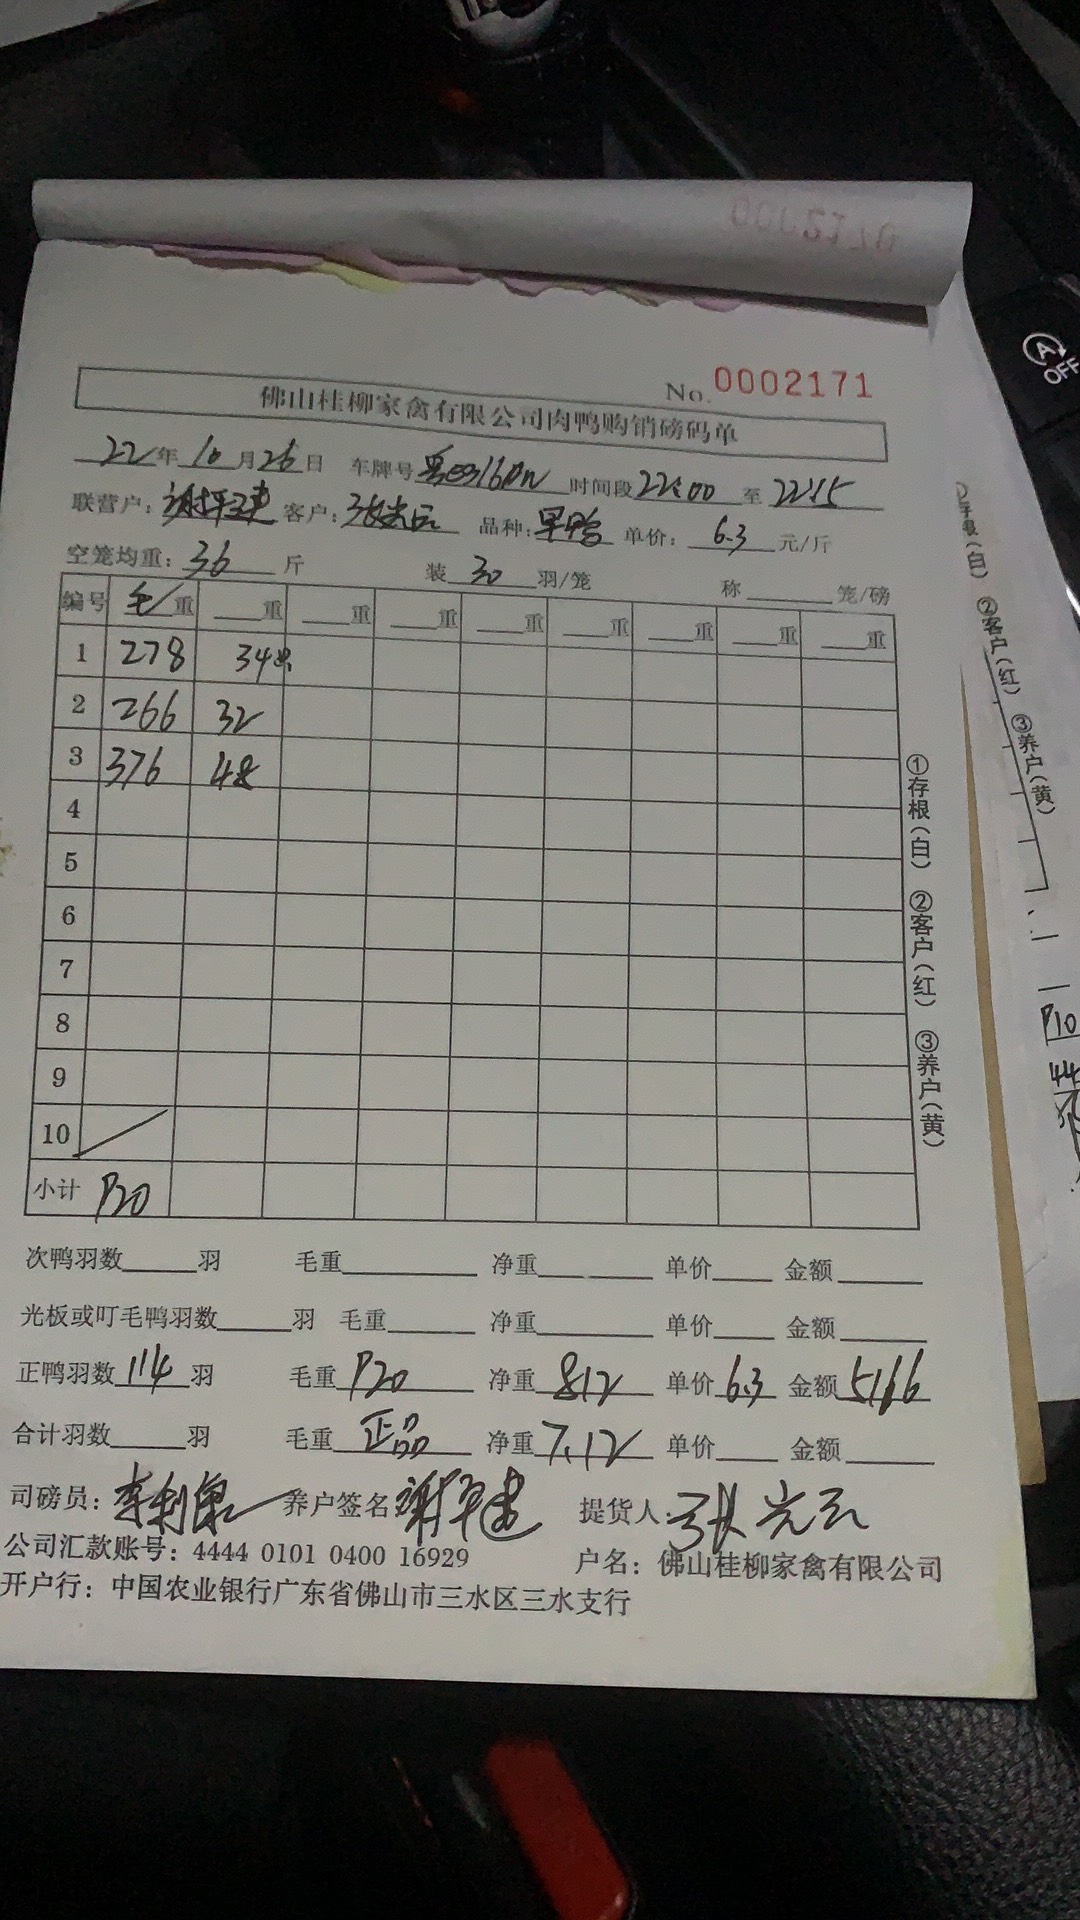 No. 0002171
佛山桂柳家禽有限公司肉鸭购销磅码单
22年10月26日 车牌号 时间段22:00至22:15
联营户： 客户： 品种： 单价：6.3元/斤
空笼均重：36斤 装30羽/笼 称 笼/磅
编号 毛重 重 重 重 重 重 重 重 重
1 278 34
2 266 32
3 376 48
4
5
6
7
8
9
10
小计 920
①存根(白) ②客户(红) ③养户(黄)
次鸭羽数 羽 毛重 净重 单价 金额
光板或叮毛鸭羽数 羽 毛重 净重 单价 金额
正鸭羽数114羽 毛重920 净重812 单价6.3 金额5116
合计羽数 羽 毛重正品 净重7.12 单价 金额
司磅员： 养户签名 提货人：张光云
公司汇款账号：4444 0101 0400 16929 户名：佛山桂柳家禽有限公司
开户行：中国农业银行广东省佛山市三水区三水支行
②客户(红) ③养户(黄)
A
OFF